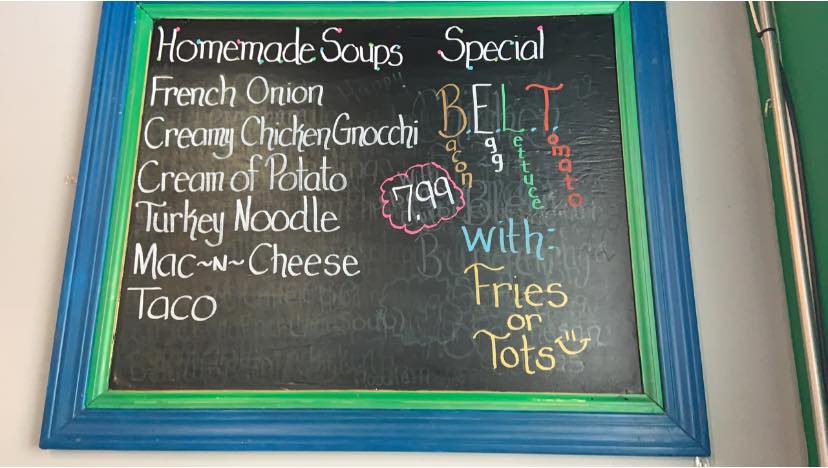 Homemade Soups
French Onion
Creamy Chicken Gnocchi
Cream of Potato
Turkey Noodle
Mac~N~Cheese
Taco
Special
B.E.L.T.
Bacon
Egg
Lettuce
Tomato
7.99
with:
Fries
or
Tots